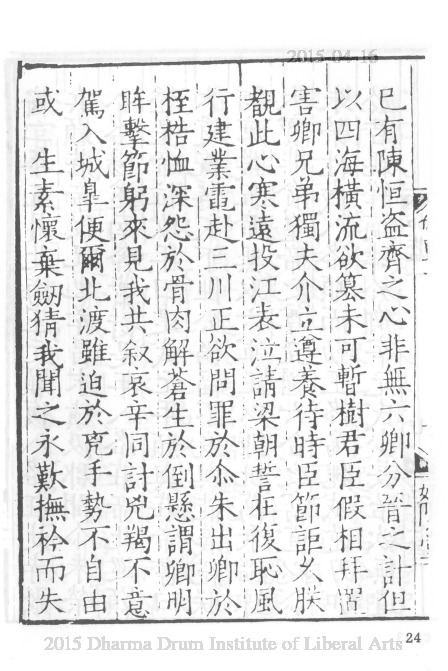 2015-04-16
已有陳恒盗齊之心非無六卿分晉之計但
以四海橫流欲篡未可暫樹君臣假相拜置
害卿兄弟獨夫介立遵養待時臣節詎久朕
覩此心寒遠投江表泣請梁朝誓在復恥風
行建業雷赴三川正欲問罪於尒朱出卿於
桎梏恤深怨於骨肉解蒼生於倒懸謂卿明
眸擊節躬來見我共叙哀辛同討兇羯不意
駕入城臯便爾北渡雖迫於兇手勢不自由
或 生素懷棄劒猜我聞之永歎撫衿而失
24
2015 Dharma Drum Institute of Liberal Arts